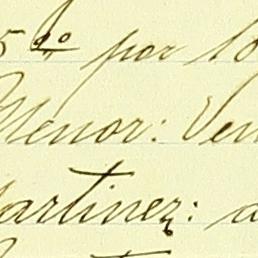 5 2º por lo
Menor: Ven
Martinez: a